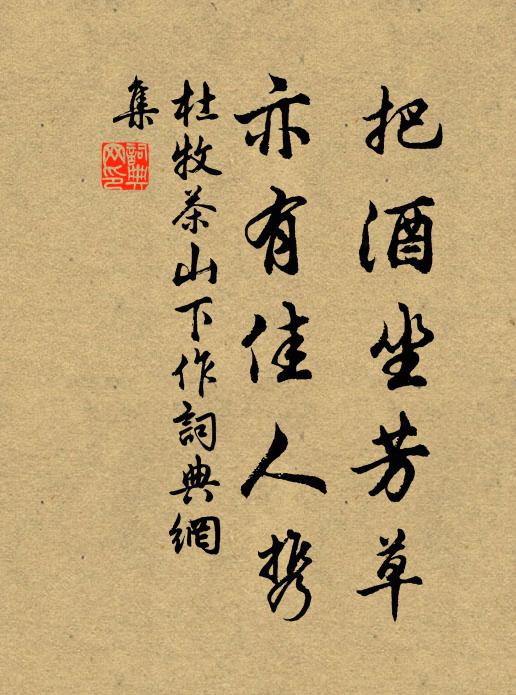 把酒坐芳草
亦有佳人携
杜牧茶山下作詞典網
集
詞典網印